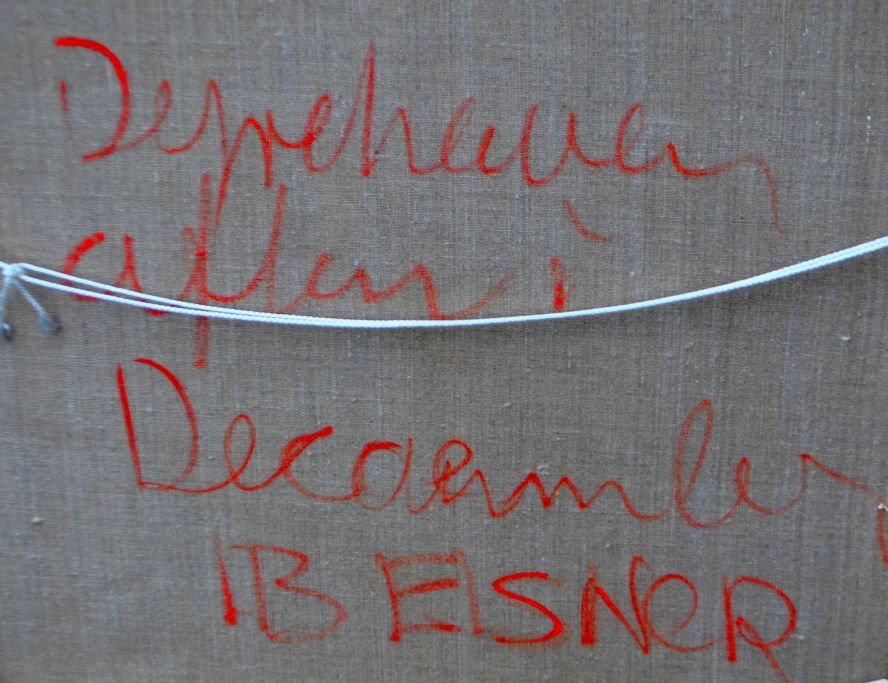 Dyrehaven
aften i
December
IB EISNER